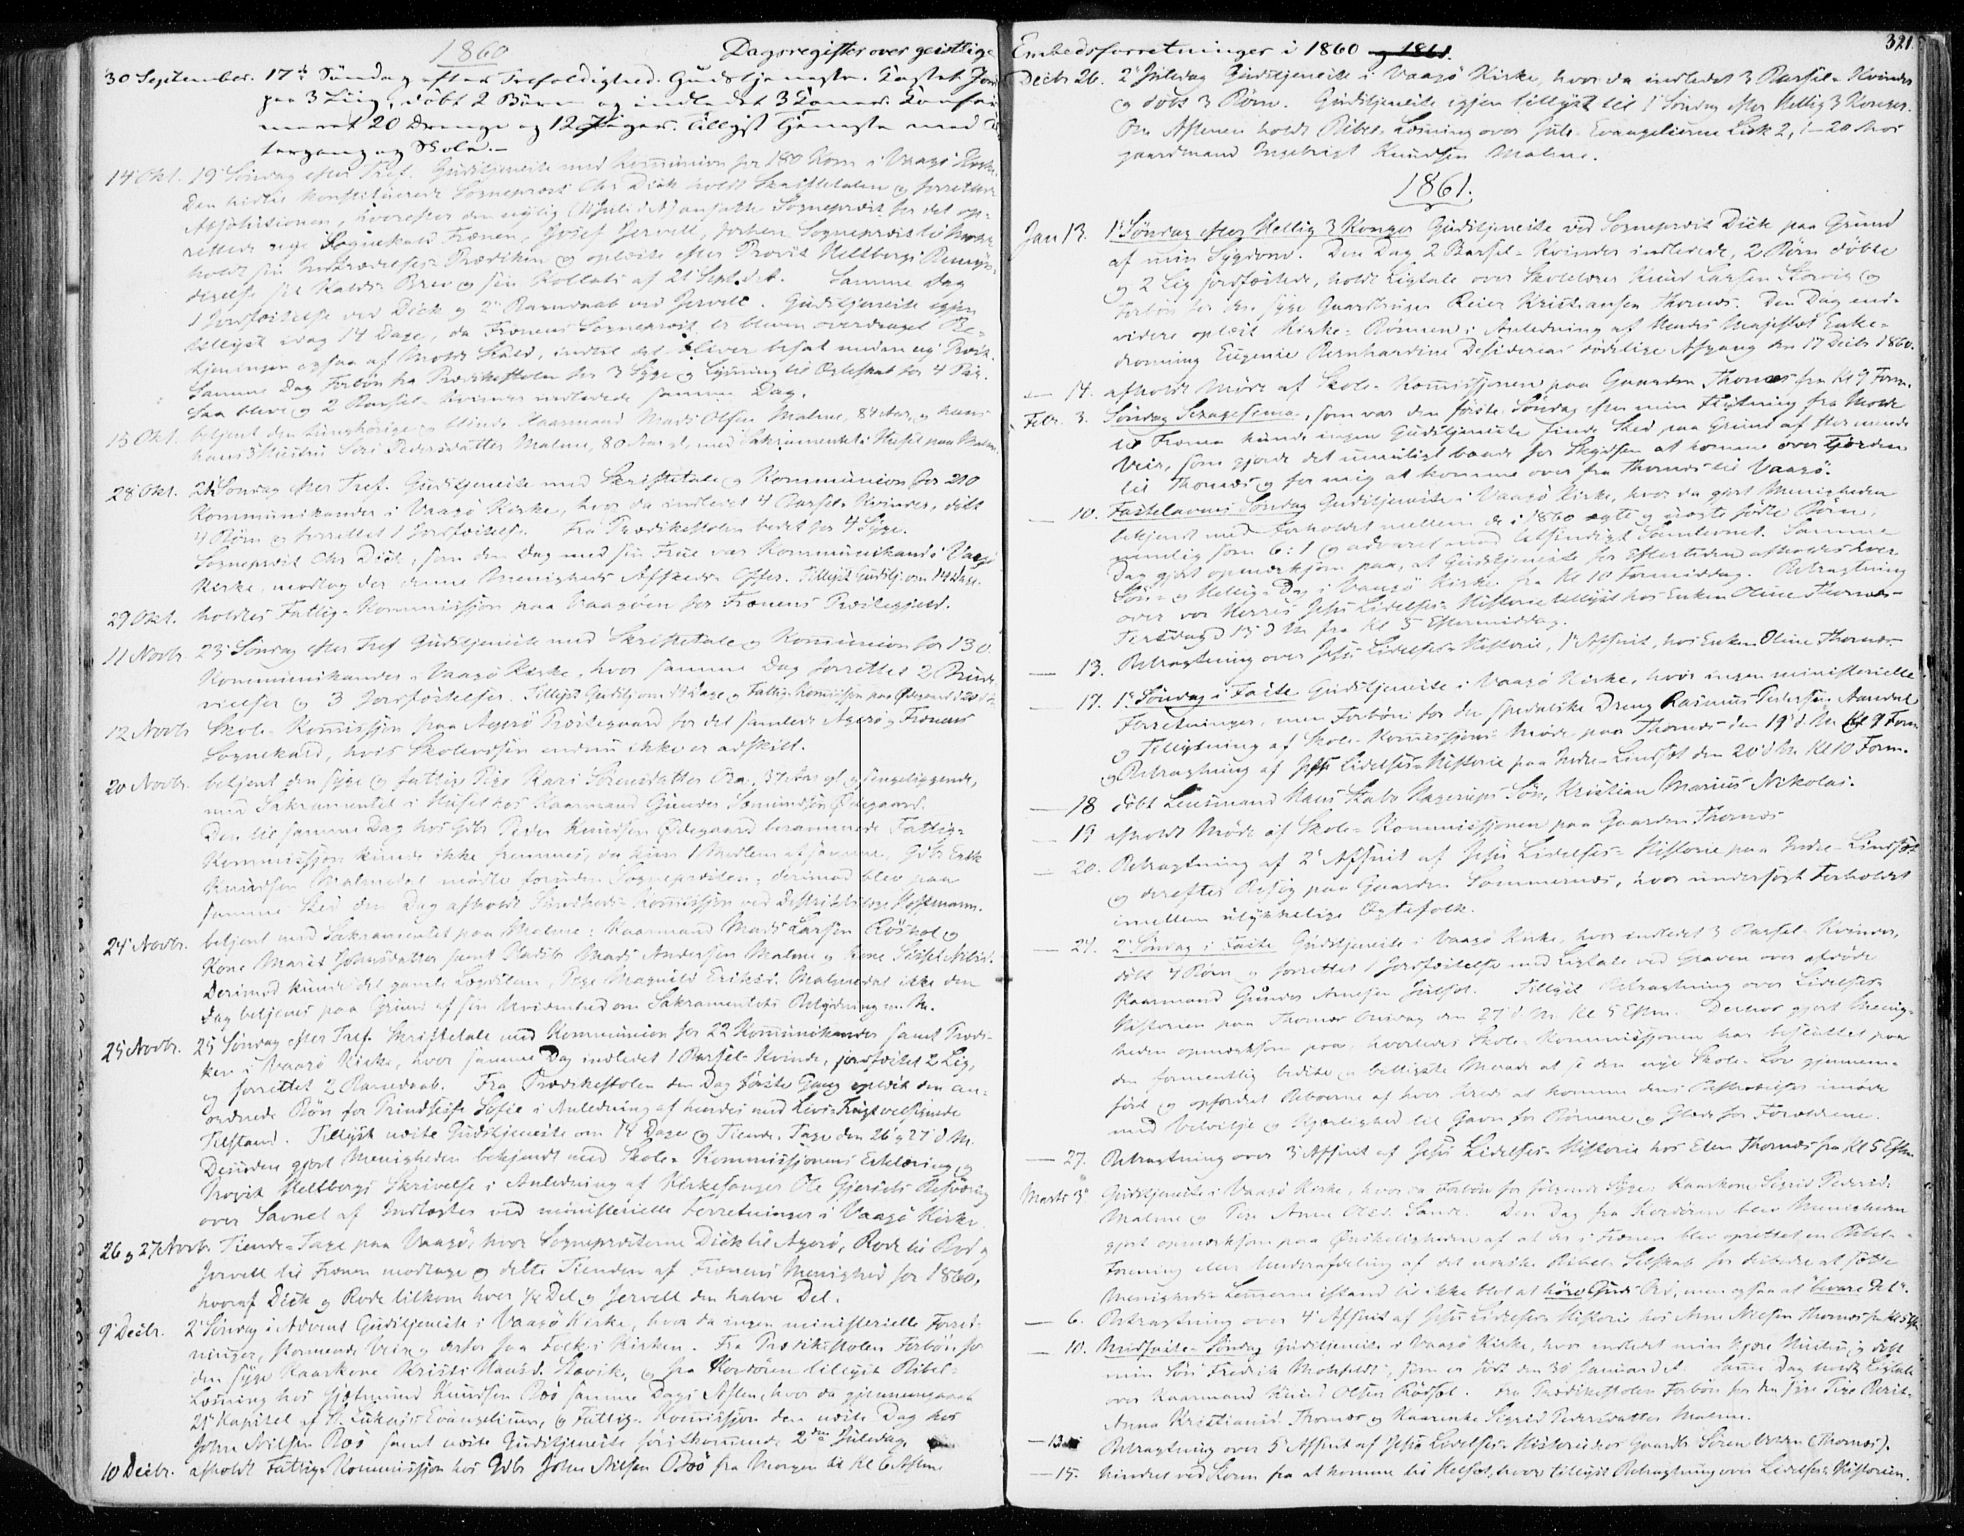 1860
Dagsregister over geistlige
30 September. 17de Søndag efter Trefoldighed. Gudstjeneste. Kastet Jord
paa 3 Liig, døbt 2 Børn og indledet 3 Koner. Konfir
meret 20 Drenge og 12 Piger. Tillyst Tjeneste med
og Skole.
14 Okt. 19 Søndag efter Tref. Gudstjeneste med Kommunion for 180 Kom i Vaagø Kirke.
Den hidtil konstituerede Sognepræst Chr Dick holdt Skriftetalen og forrettede
Absolutionen, hvorefter den nylig (11 Juli d A) ansatte Sognepræst for det op-
rettede nye Sognekald Frænen, Josef Jervell, forhen Sognepræst til
holdt sin Indtrædelses-Prædiken og oplæste efter Provst Heltbergs Bemyn-
digelse sit Kalds-Brev og sin Kollats af 21 Sept. d.A. Samme Dag
1 Jordfæstelse ved Dick og 2 Barnedaab ved Jervell. Gudstjeneste igjen
tillyst idag 14 Dage, da Frænens Sognepræst er bleven overdraget Be-
tjeningen ogsaa af Molde Kald, indtil det bliver besat med en ny Præst.
Samme Dag Forbøn fra Prædikestolen for 3 Syge og Lysning til Ægteskab for 4 Par.
Saa bleve og 2 Barsel-Kvinder indledede samme Dag.
15 Okt. betjent den tunghørige og blinde Kaarmand Mads Olsen Malme, 84 Aar, og hans
Hustru Seri Pedersdatter Malme, 80 Aar gl. med Sakramentet i Huset paa Malme.
28 Okt. 21 Søndag efter Tref. Gudstjeneste med Skriftetale og Kommunion for 210
Kommunikanter i Vaagø Kirke, hvor da indledet 4 Barsel-Kvinder, døbt
4 Børn og forrettet 1 Jordfæstelse. Fra Prædikestolen bedet for 4 Syge.
Sognepræst Chr Dick, som den Dag med sin Frue var Kommunikant i Vaagø
Kirke, modtog der denne Menigheds Afskeds-Offer. Tillyst Gudstj. om 14 Dage.
29 Okt. holdtes Fattig-Kommission paa Vaagøen for Frænens Præstegjeld.
11 Novbr. 23 Søndag efter Tref Gudstjeneste med Skriftetale og Kommunion for 130
Kommunikanter i Vaagø Kirke, hvor samme Dag forrettet 2 Brude-
vielser og 3 Jordfæstelser. Tillyst Gudstj. om 14 Dage og Fattig-Komission paa Ødegaard
12 Novbr Skole-Komission paa Agerø Præstegaard for det samlede Agerø og Frænens
Sognekald, hvis Skolevæsen endnu ikke er adskilt.
20 Novbr. betjent den syge og fattige Pige Kari Sørensdatter 37 Aar gl. og sengeliggende,
med Sakramentet i Huset hos Kaarmand Gunder Sæmundsøn Ødegaard.
Den til samme Dag hos Gdb Peder Knudsen Ødegaard berammede Fattig-
Kommission kunde ikke fremmes, da kun 1 Medlem af samme, Gdb Erik
Knudsen Malmedal mødte foruden Sognepræsten; derimod blev paa
samme Sted den Dag afholdt Sundheds-Komission ved Distriktslæge Hoffmann.
24 Novbr. betjent med Sakramentet paa Malme: Kaarmand Mads Larsen Røshol og
Kone Marit Johnsdatter samt Husm. Mads Andersen Malme og Kone Sissel Nilsd.
Derimod kunde det gamle Lægdslem, Pige Magnild Eriksd. Malmedal ikke den
Dag betjenes paa Grund af sin Uvidenhed om Sakramentets Betydning m.M.
25 Novbr. 25 Søndag efter Tref. Skriftetale med Kommunion for 22 Kommunikanter samt Prædi-
ken i Vaagø Kirke, hvor samme Dag indledet 1 Barsel-Kvinde, jordfæstet 2 Lig,
og forrettet 2 Barnedaab. Fra Prædikestolen den Dag første Gang oplæst den an-
ordnede Bøn for Prindsesse Sofie i Anledning af hendes med Livs-Frugt velsignede
Tilstand. Tillyst næste Gudstjeneste om 14 Dage og Tiende-Tage den 26 og 27 d M.
Desuden gjort Menigheden bekjendt med Skole-Kommissionens Erklæring og
Provst Heltbergs Skrivelse i Anledning af Kirkesanger Ole Gjersets Besværing
over Savnet af Indtægter ved ministerielle Forretninger i Vaagø Kirke.
26 og 27 Novbr Tiende-Tage paa Vaagø, hvor Sognepræsterne Dick til Agerø, Rode til Bod og
Jervell til Frænen modtoge og delte Tienden af Frænens Menighed for 1860,
hvoraf Dick og Rode tilkom hver ¼ Del og Jervell den halve Del.
9 Decbr. 2 Søndag i Advent Gudstjeneste i Vaagø Kirke, hvor da ingen ministerielle Forret-
ninger, stormende Veir og derfor faa Folk i Kirken. Fra Prædikestolen Forbøn for
den syge Kaarkone Kristi Hansd. Stavik, og fra Kordøren tillyst Bibel-
Læsning hos Sjømund Knudsen Bøø samme Dags Aften, hvor da gjennemgaaet
21 Kapitel af St. Lukas's Evangelium, og Fattig-Komission den næste Dag hos
John Nilsen Bøø samt næste Gudstjeneste førstkommende 2den Juledag.
10 Decbr. afholdt Fattig-Kommission hos Gdb John Nilsen Bøø fra Morgen til Kl 6 Aften
Embedsforretninger i 1860 og 1861.
321
Decbr 26. 2 Juledag Gudstjeneste i Vaagø Kirke, hvor da indledet 3 Barsel-Kvinder
og døbt 3 Børn. Gudstjeneste igjen tillyst til 1 Søndag efter Hellig 3 Konger.
Om Aftenen holdt Bibel-Læsning over Jule-Evangelierne Luk 2, 1-20 hos
gaardmand Ingebrigt Knudsen Malme.
1861.
Jan 13. 1 Søndag efter Hellig 3 Konger Gudstjeneste ved Sognepræst Dick paa Grund
af min Sygdom. Den Dag 2 Barsel-Kvinder indledede, 2 Børn døbte
og 2 Lig jordfæstede, holdt Ligtale over Skolelærer Knud Larsen Storvig og
Forbøn for den syge Gaardbruger Reier Kristiansen Thornes. Den Dag end-
videre oplæst Kirke-Bønnen i Anledning af Hendes Majestæt Enke-
dronning Eugenie Bernhardine Desiderias dødelige Afgang den 17 Decbr 1860.
— 14. afholdt Møde af Skole-Komissionen paa Gaarden Thornes fra Kl 9 Form.
Febr. 3. Søndag Sexagesima, som var den første Søndag efter min Flytning fra Molde
til Fræna kunde ingen Gudstjeneste finde Sted paa Grund af stormende
Veir, som gjorde det umuligt baade for Skydsen at komme over Fjorden
til Thornes og for mig at komme over fra Thornes til Vaagø.
— 10. Fastelavns Søndag Gudstjeneste i Vaagø Kirke, hvor da gjort Menigheden
bekjendt med Forholdet mellem de i 1860 ægte og uægte fødte Børn,
nemlig som 6:1 og advaret mod letsindigt Samlevnet. Samme
Dag gjort opmærksom paa, at Gudstjeneste for Eftertiden afholdes hver
Søn- og Hellig-Dag i Vaagø Kirke fra Kl 10 Formiddag. Betragtning
over vor Herres Jesu Lidelses-Historie tillyst hos Enken Oline Thornes
13 d M. fra Kl 5 Eftermiddag.
— 13. Betragtning over Jesu Lidelses-Historie, 1 Afsnit, hos Enken Oline Thornes.
— 17. 1 Søndag i Faste Gudstjeneste i Vaagø Kirke, hvor ingen ministerielle
Forretninger, men Forbøn for den spedalske Dreng Rasmus Pedersen Aandal
og Tillysning af Skole-Komissions-Møde paa Thornes den 19 d M Kl 9 Form
og Betragtning af Jesu Lidelses-Historie paa Indre-Lindset den 20 d M. Kl 10 Form.
— 18 døbt Lensmand Hans Stabo Hagerups Søn, Kristian Marius Nikolai.
— 19 afholdt Møde af Skole-Kommissionen paa Gaarden Thornes
— 20. Betragtning af 2 Afsnit af Jesu Lidelses-Historie paa Indre-Lindset
og derefter Besøg paa Gaarden Sommernes, hvor undersøgt Forholdet
imellem ulykkelige Ægtefolk.
— 24. 2 Søndag i Faste Gudstjeneste i Vaagø Kirke, hvor indledet 3 Barsel-Kvinder,
døbt 4 Børn og forrettet 1 Jordfæstelse med Ligtale ved Graven over afdøde
Kaarmand Gunder Arnesen Julset. Tillyst Betragtning over Lidelses-
Historien paa Thornes Onsdag den 27 d M. Kl 5 Eftm. Derhos gjort Menig-
heden opmærksom paa, hvorledes Skole-Kommissionen har besluttet paa
den formentlig bedste og billigste Maade at se den nye Skole-Lov gjennem-
ført og opfordret Beboerne af hver Kreds at komme dens Bestræbelser imøde
med Velvilje og Kjærlighed til Gavn for Børnene og Glæde for Forældrene.
— 27. Betragtning over 3 Afsnit af Jesu Lidelses-Historie hos Elen Thornes fra Kl 5 Eftm
Marts 3 Gudstjeneste i Vaagø Kirke, hvor da Forbøn for følgende Syge: Kaarkone Sigrid Pedersd.
Malme og Pige Anne Olsd. Sande. Den Dag fra Kordøren blev Menigheden
gjort opmærksom paa Ønskeligheden af at der i Frænen blev oprettet en Bibel-
Forening eller Underafdeling af det norske Bibel-Selskab for derved at sætte
Menigheds-Lemmerne istand til ikke blot at høre Guds Ord, men ogsaa at "bevare det".
— 6. Betragtning over 4 Afsnit af Jesu Lidelses Historie hos Arne Nielsen Thornes fra Kl 5 Eftm
— 10. Midfaste-Søndag Gudstjeneste i Vaagø Kirke, hvor indledet min kjære Hustru og døbt
min Søn Fredrik Motzfeldt, som er født den 30 Januar d A. Samme Dag holdt Ligtale
over Kaarmand Knud Olsen Rødsæt. Fra Prædikestolen Forbøn for den syge Pige Berit-
Anna Kristiansd. Thornes og Kaarenke Sigrid Pedersdatter Malme.
— 13 Betragtning over 5 Afsnit af Jesu Lidelses-Historie hos Gaardb. Søren Volden (Thornes).
— 15. hindret ved Storm fra at komme til Helset, hvor tillyst Betragtning over Lidelses-Historien.